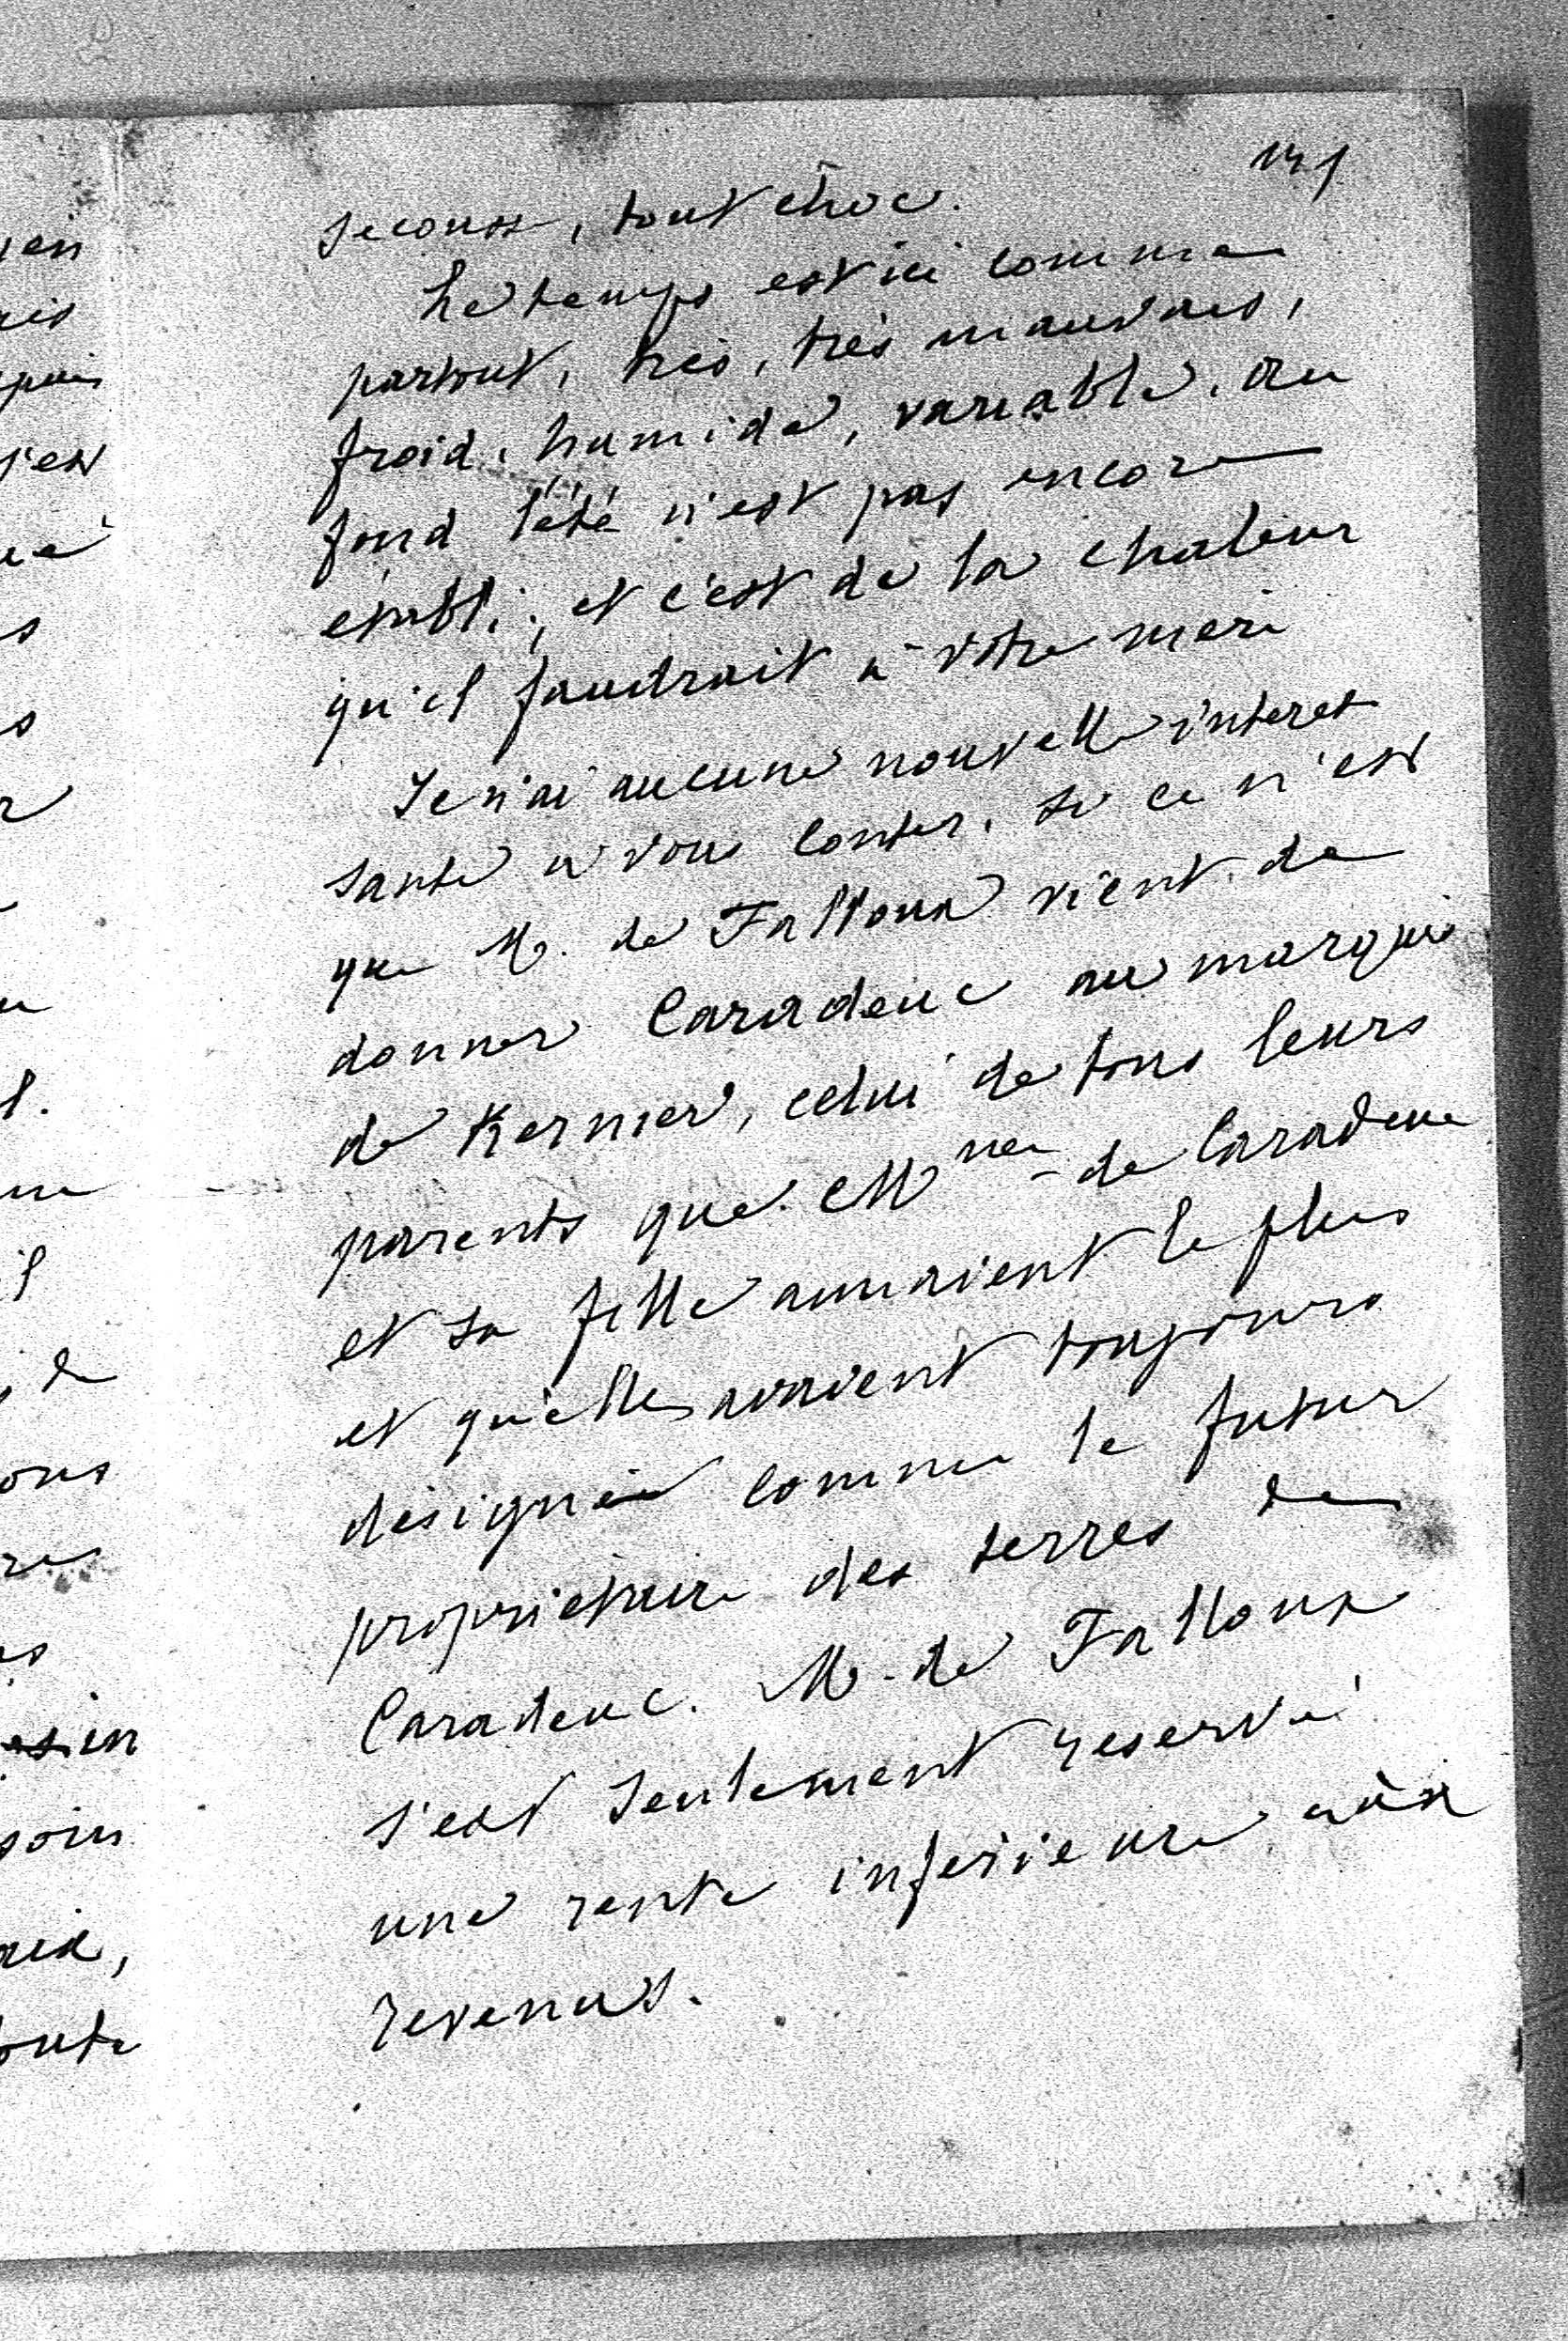 secousse, tout choc.
Le temps est ici comme
partout, très, très mauvais,
froid, humide, variable. Au
fond l'été n'est pas encore
établi, et c'est de la chaleur
qu'il faudrait à votre mari
Je n'ai aucune nouvelle interes
sante à vous conter, si ce n'est
que M. de Falloux vient de
donner Caradeuc au marquis
de Kernier, celui de tous leurs
parents que Mme de Caradeuc
et sa fille aimaient le plus
et qu'elles avaient toujours
désigné comme le futur
propriétaire des terres de
Caradeuc. M. de Falloux
s'est seulement reservé
une rente inferieure aux
revenus.